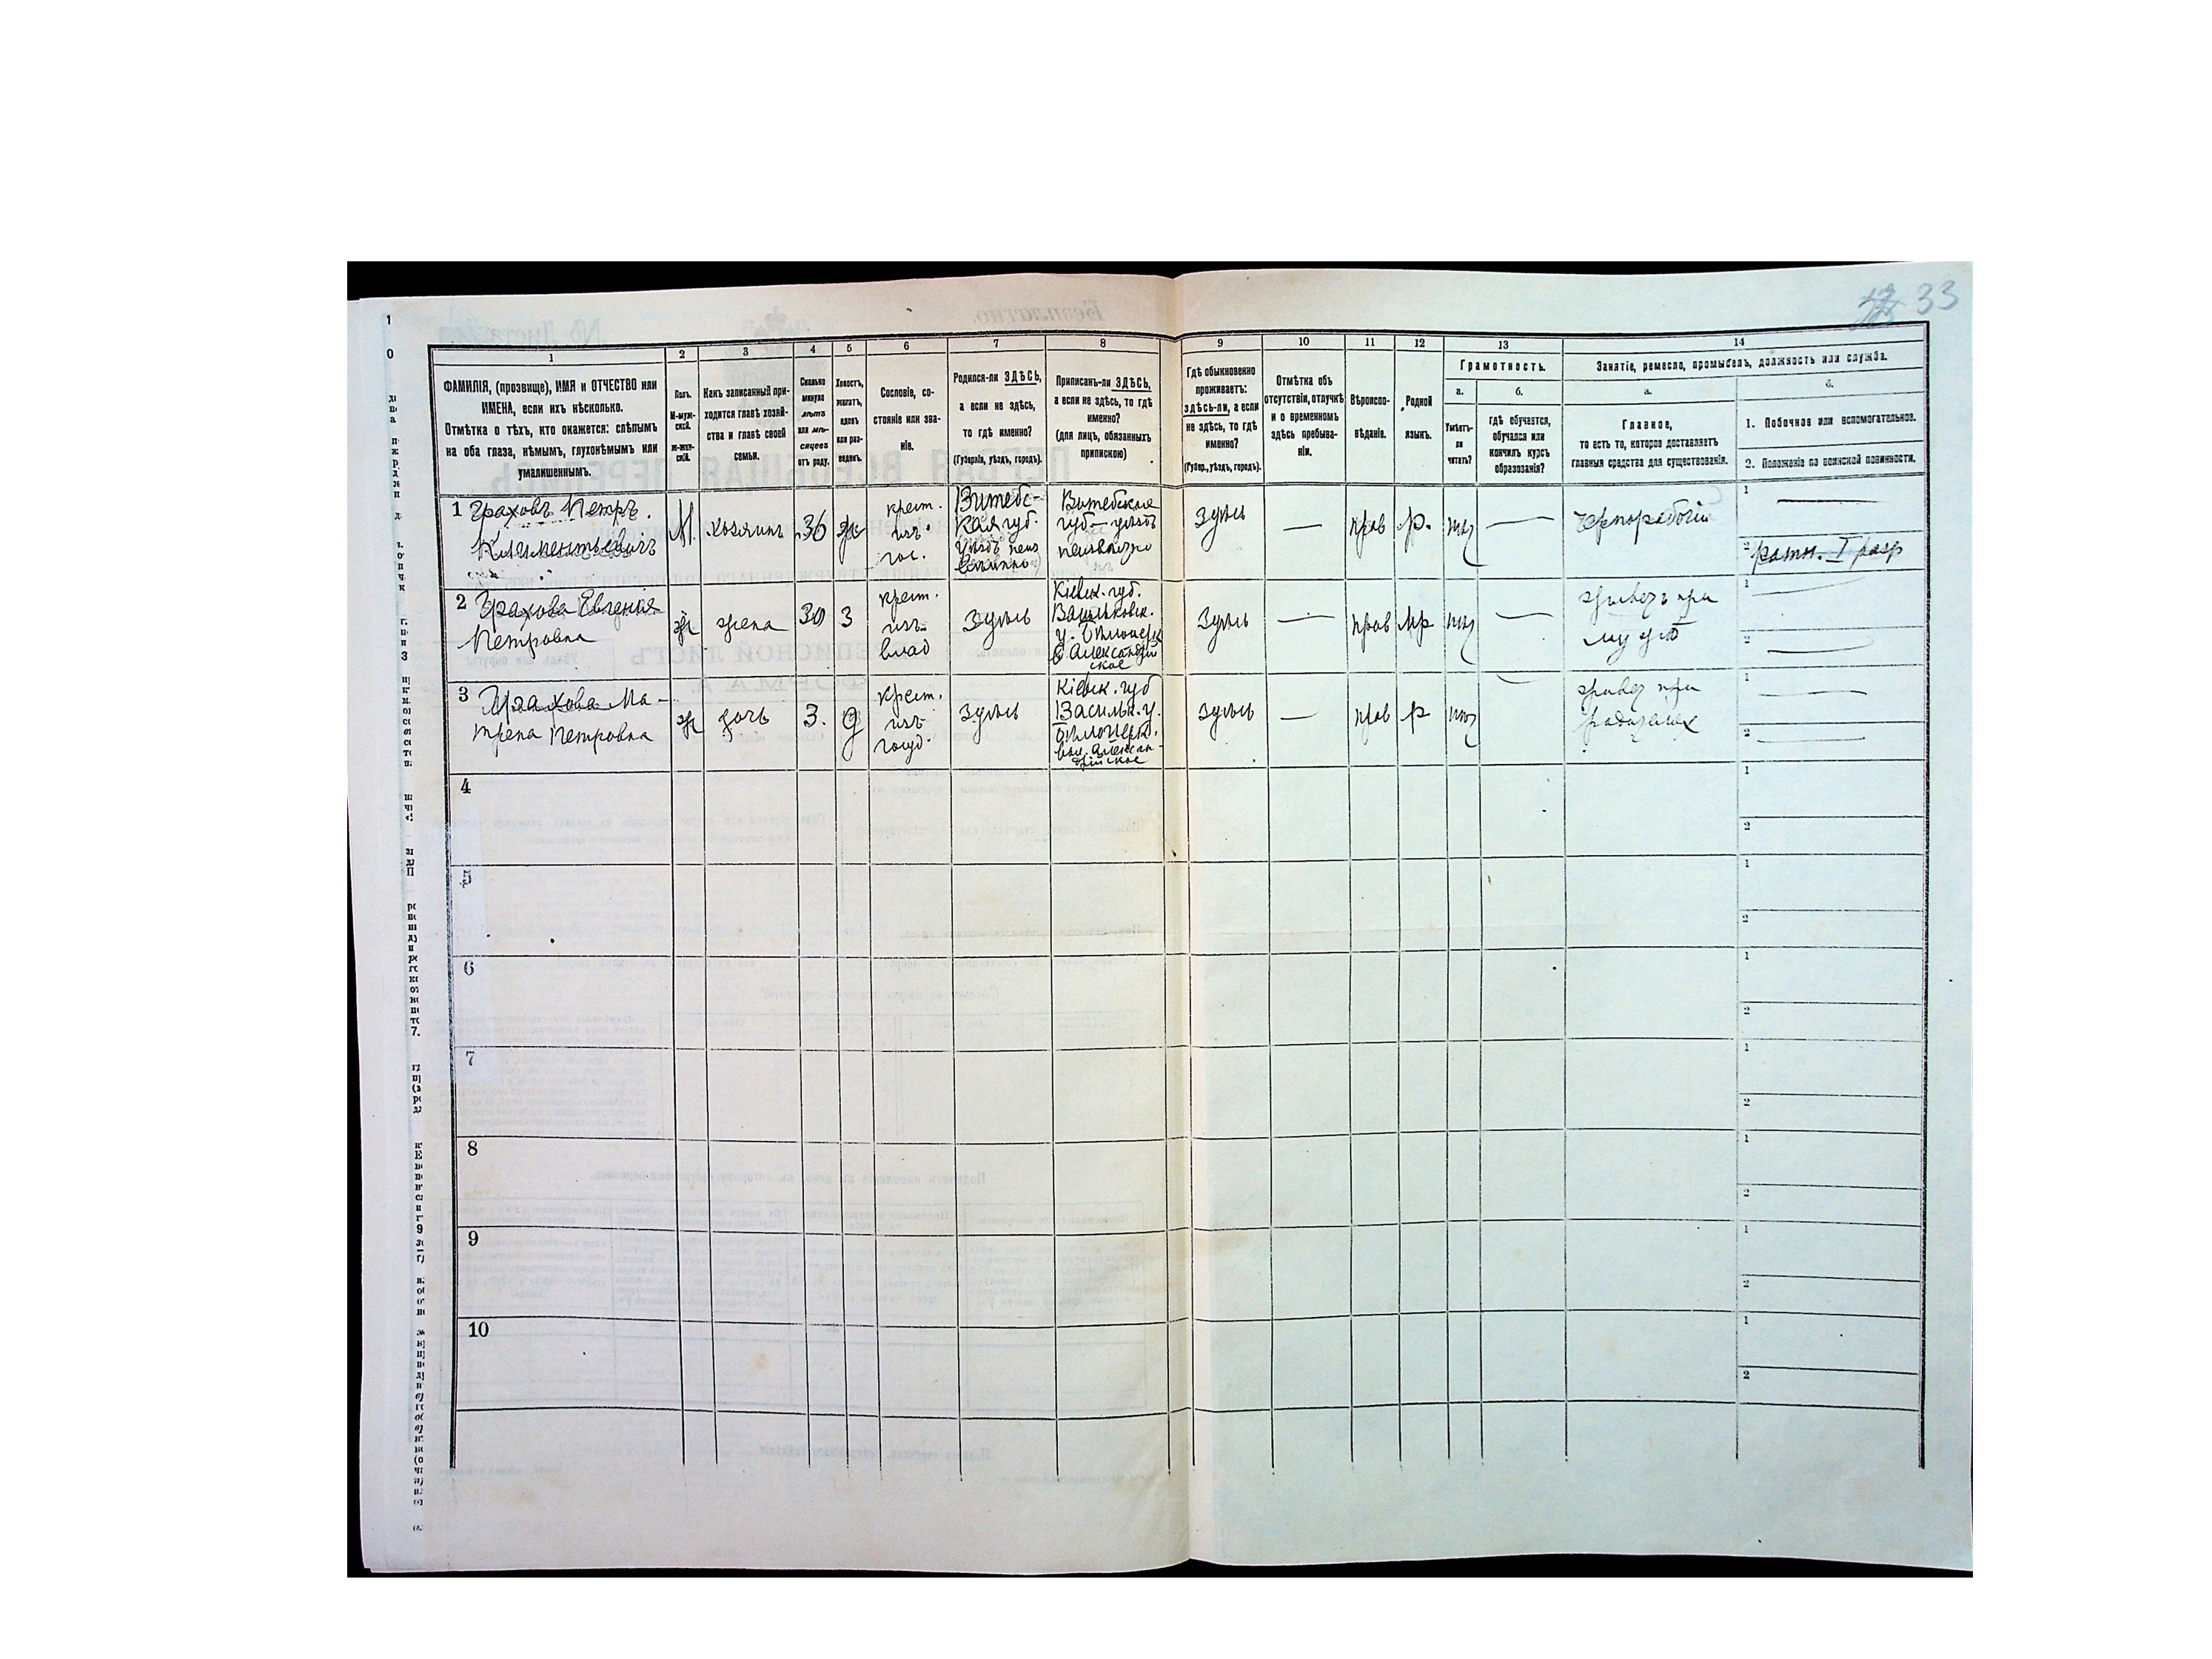 33
1 2 3 4 5 6 7 8 9 10 11 12 13 14
ФАМИЛІЯ, (прозвище), ИМЯ и ОТЧЕСТВО или
ИМЕНА, если ихъ нѣсколько.
Отмѣтка о тѣхъ, кто окажется: слѣпымъ
на оба глаза, нѣмымъ, глухонѣмымъ или
умалишеннымъ.
Полъ.
М-муж-
ской.
Ж-жен-
скій.
Какъ записанный при-
ходится главѣ хозяй-
ства и главѣ своей
семьи.
Сколько
минуло
лѣтъ
или мѣ-
сяцевъ
отъ роду.
Холостъ,
женатъ,
вдовъ
или раз-
веденъ.
Сословіе, со-
стояніе или зва-
ніе.
Родился-ли ЗДѢСЬ,
а если не здѣсь,
то гдѣ именно?
(Губернія, уѣздъ, городъ).
Приписанъ-ли ЗДѢСЬ,
а если не здѣсь, то гдѣ
именно?
(для лицъ, обязанныхъ
припискою)
Гдѣ обыкновенно
проживаетъ:
здѣсь-ли, а если
не здѣсь, то гдѣ
именно?
(Губер., уѣздъ, городъ).
Отмѣтка объ
отсутствіи, отлучкѣ
и о временномъ
здѣсь пребыва-
ніи.
Вѣроиспо-
вѣданіе.
Родной
языкъ.
Грамотность.
а.
Умѣетъ-
ли
читать?
б.
гдѣ обучается,
обучался или
кончилъ курсъ
образованія?
Занятіе, ремесло, промыселъ, должность или служба.
а.
Главное,
то есть то, которое доставляетъ
главныя средства для существованія.
б.
1. Побочное или вспомогательное.
2. Положеніе по воинской повинности.
1 Граховъ Петръ
Климентьевичъ
М
хозяинъ
36
ж
крест.
изъ
гос.
Витебс-
кая губ.
уѣздъ неиз
Витебская
губ – уѣздъ
неизвѣстно
здѣсь
—
прав
р.
нѣт
—
чернорабочій
1
2 ратн. I разр
2 Грахова Евгенія
Петровна
ж
жена
30
З
крест.
изъ
влад
здѣсь
Кіевск. губ.
Васильковск.
у.
Александрій
ское
здѣсь
—
прав
мр
нѣт
—
живетъ при
мужѣ
1
2
3 Грахова Ма-
трена Петровна
ж
дочь
3.
д
крест.
изъ
госуд.
здѣсь
Кіевск. губ
Васильк. у.
вол. Алексан-
дрійское
здѣсь
—
прав
р
нѣт
живет при
родителях
1
2
4
1
2
5
1
2
6
1
2
7
1
2
8
1
2
9
1
2
10
1
2